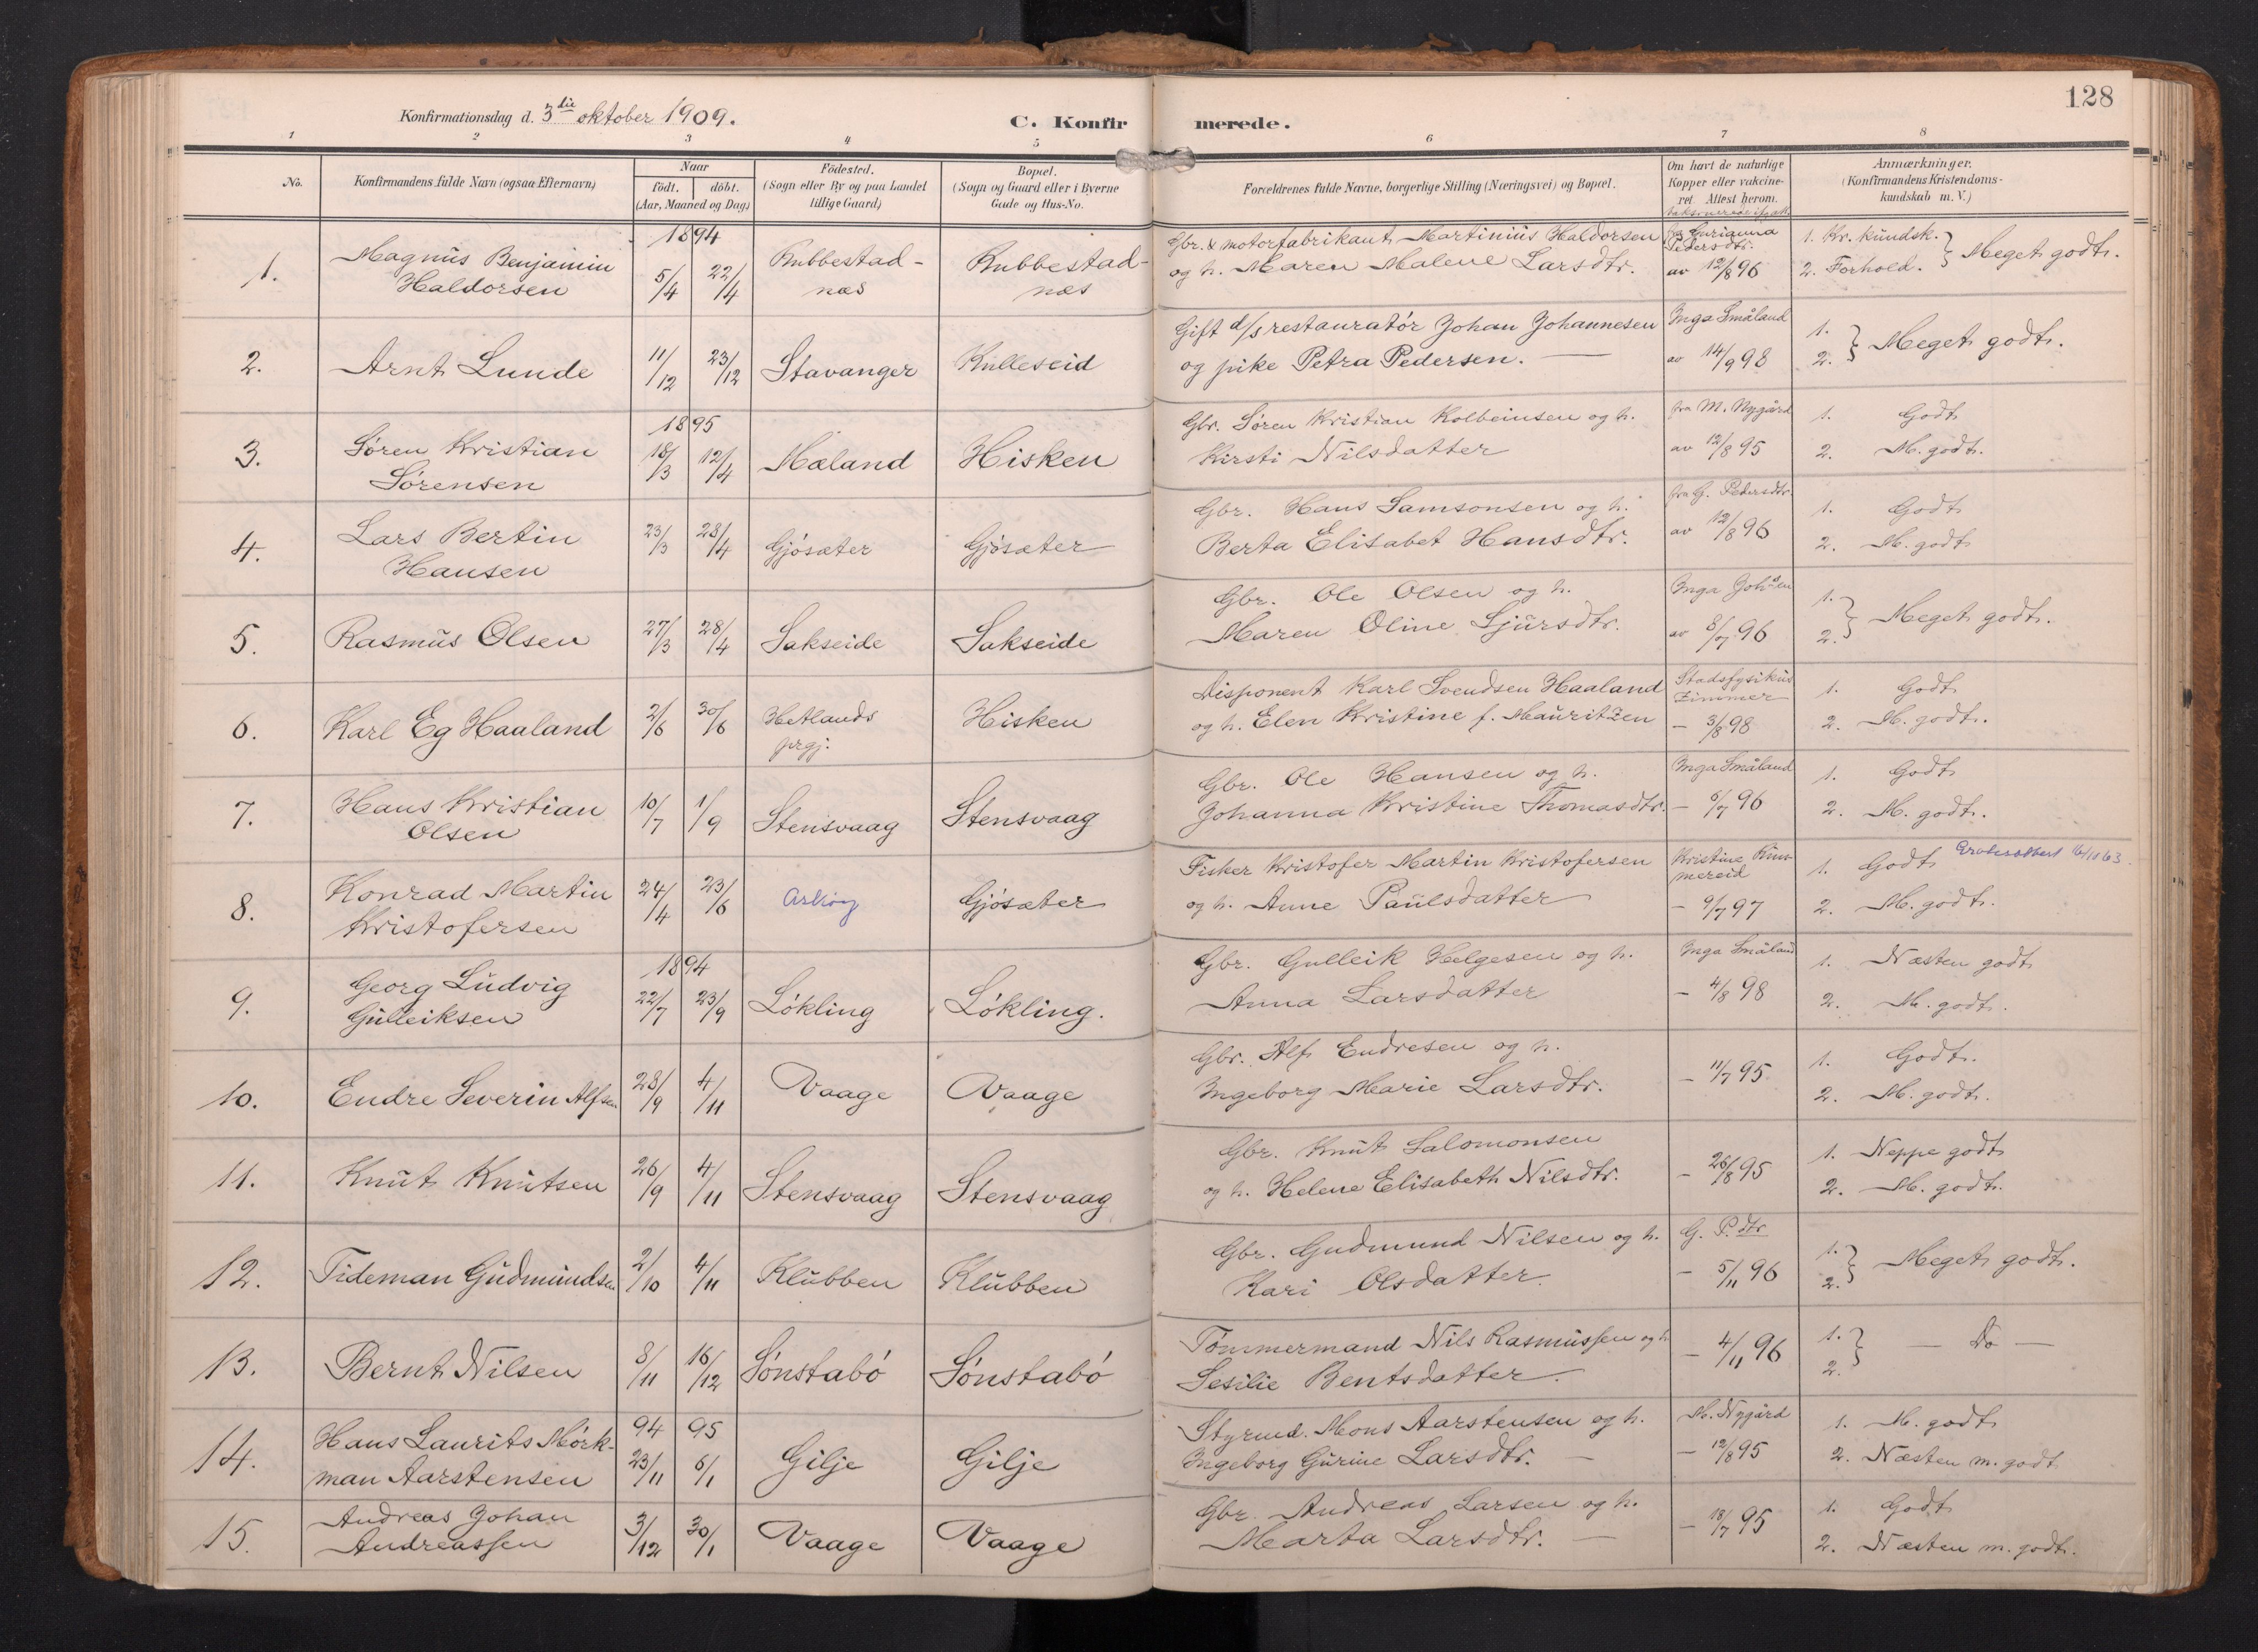 128
Konfirmationsdag d. 3die oktober 1909.
C. Konfirmerede.
1 2 3 4 5 6 7 8
No.
Konfirmandens fulde Navn (ogsaa Efternavn)
Naar
födt. döbt.
(Aar, Maaned og Dag)
Födested.
(Sogn eller By og paa Landet
tillige Gaard)
Bopæl.
(Sogn og Gaard eller i Byerne
Gade og Hus-No.
Forældrenes fulde Navne, borgerlige Stilling (Næringsvei) og Bopæl.
Om havt de naturlige
Kopper eller vakcine-
ret. Attest herom.
Anmærkninger.
(Konfirmandens Kristendoms-
kundskab m. V.)
1894
1. Magnus Benjamin Haldorsen 5/4 22/4 Rubbestad-næs Rubbestad-næs
Gbr. & motorfabrikant Martinius Haldorsen
og h. Maren Malene Larsdtr.
Gurianna Pedersdtr. av 12/8 96
1. Kr. kundsk. 2. Forhold. } Meget godt.
2. Arnt Lunde 11/12 23/12 Stavanger Kulleseid
Gift d/s restauratör Johan Johannesen
og pike Petra Pedersen. —
Inga Småland av 14/9 98
1. 2. } Meget godt.
1895
3. Sören Kristian Sörensen 18/3 12/4 Mæland Hisken
Gbr. Sören Kristian Kolbeinsen og h.
Kirsti Nilsdatter
fra M. Nygård av 12/8 95
1. Godt
2. M. godt.
4. Lars Bertin Hansen 23/3 28/4 Gjösæter Gjösæter
Gbr. Hans Samsonsen og h.
Berta Elisabet Hansdtr.
fra G. Pedersdtr. av 12/8 96
1. Godt
2. M. godt
5. Rasmus Olsen 27/3 28/4 Sakseide Sakseide
Gbr. Ole Olsen og h.
Maren Oline Sjursdtr.
Inga Johsen av 8/7 96
1. 2. } Meget godt.
6. Karl Eg Haaland 2/6 30/6 Hetlands prgj. Hisken
Disponent Karl Svendsen Haaland
og h. Elen Kristine f. Mauritzen
Stadsfysikus Zimmer — 3/8 98
1. Godt
2. M. godt.
7. Hans Kristian Olsen 10/7 1/9 Stensvaag Stensvaag
Gbr. Ole Hansen og h.
Johanna Kristine Thomasdtr.
Inga Småland — 6/7 96
1. Godt
2. M. godt.
8. Konrad Martin Kristofersen 24/4 23/6 Askøy Gjösæter
Fisker Kristofer Martin Kristofersen
og h. Anne Paulsdatter
Kristine Rimmereid — 9/7 97
1. Godt
2. M. godt.
1894
9. Georg Ludvig Gulleiksen 22/7 23/9 Lökling Lökling.
Gbr. Gulleik Helgesen og h.
Anna Larsdatter
Inga Småland — 4/8 98
1. Næsten godt
2. M. godt.
10. Endre Severin Alfsen 28/9 4/11 Vaage Vaage
Gbr. Alf Endresen og h.
Ingeborg Marie Larsdtr.
— 11/7 95.
1. Godt.
2. M. godt.
11. Knut Knutsen 26/9 4/11 Stensvaag Stensvaag
Gbr. Knut Salomonsen
og h. Helene Elisabeth Nilsdtr.
— 26/8 95
1. Neppe godt
2. M. godt.
12. Tideman Gudmundsen 2/10 4/11 Klubben Klubben
Gbr. Gudmund Nilsen og h.
Kari Olsdatter.
G. P.dtr — 5/11 96
1. 2. } Meget godt.
13. Bernt Nilsen 8/11 16/12 Sönstabö Sönstabö
Tömmermand Nils Rasmussen og h
Sesilie Bentsdatter.
— 4/11 96
1. 2. } — Do —
94 95
14. Hans Laurits Mörk-man Aarstensen 23/11 6/1 Gilje Gilje
Styrmd. Mons Aarstensen og h.
Ingeborg Gurine Larsdtr. —
M. Nygård — 12/8 95
1. M. godt
2. Næsten m. godt
15. Andreas Johan Andreassen 3/12 30/1 Vaage Vaage
Gbr. Andreas Larsen og h.
Marta Larsdtr. —
— 18/7 95
1. Godt
2. Næsten m. godt.